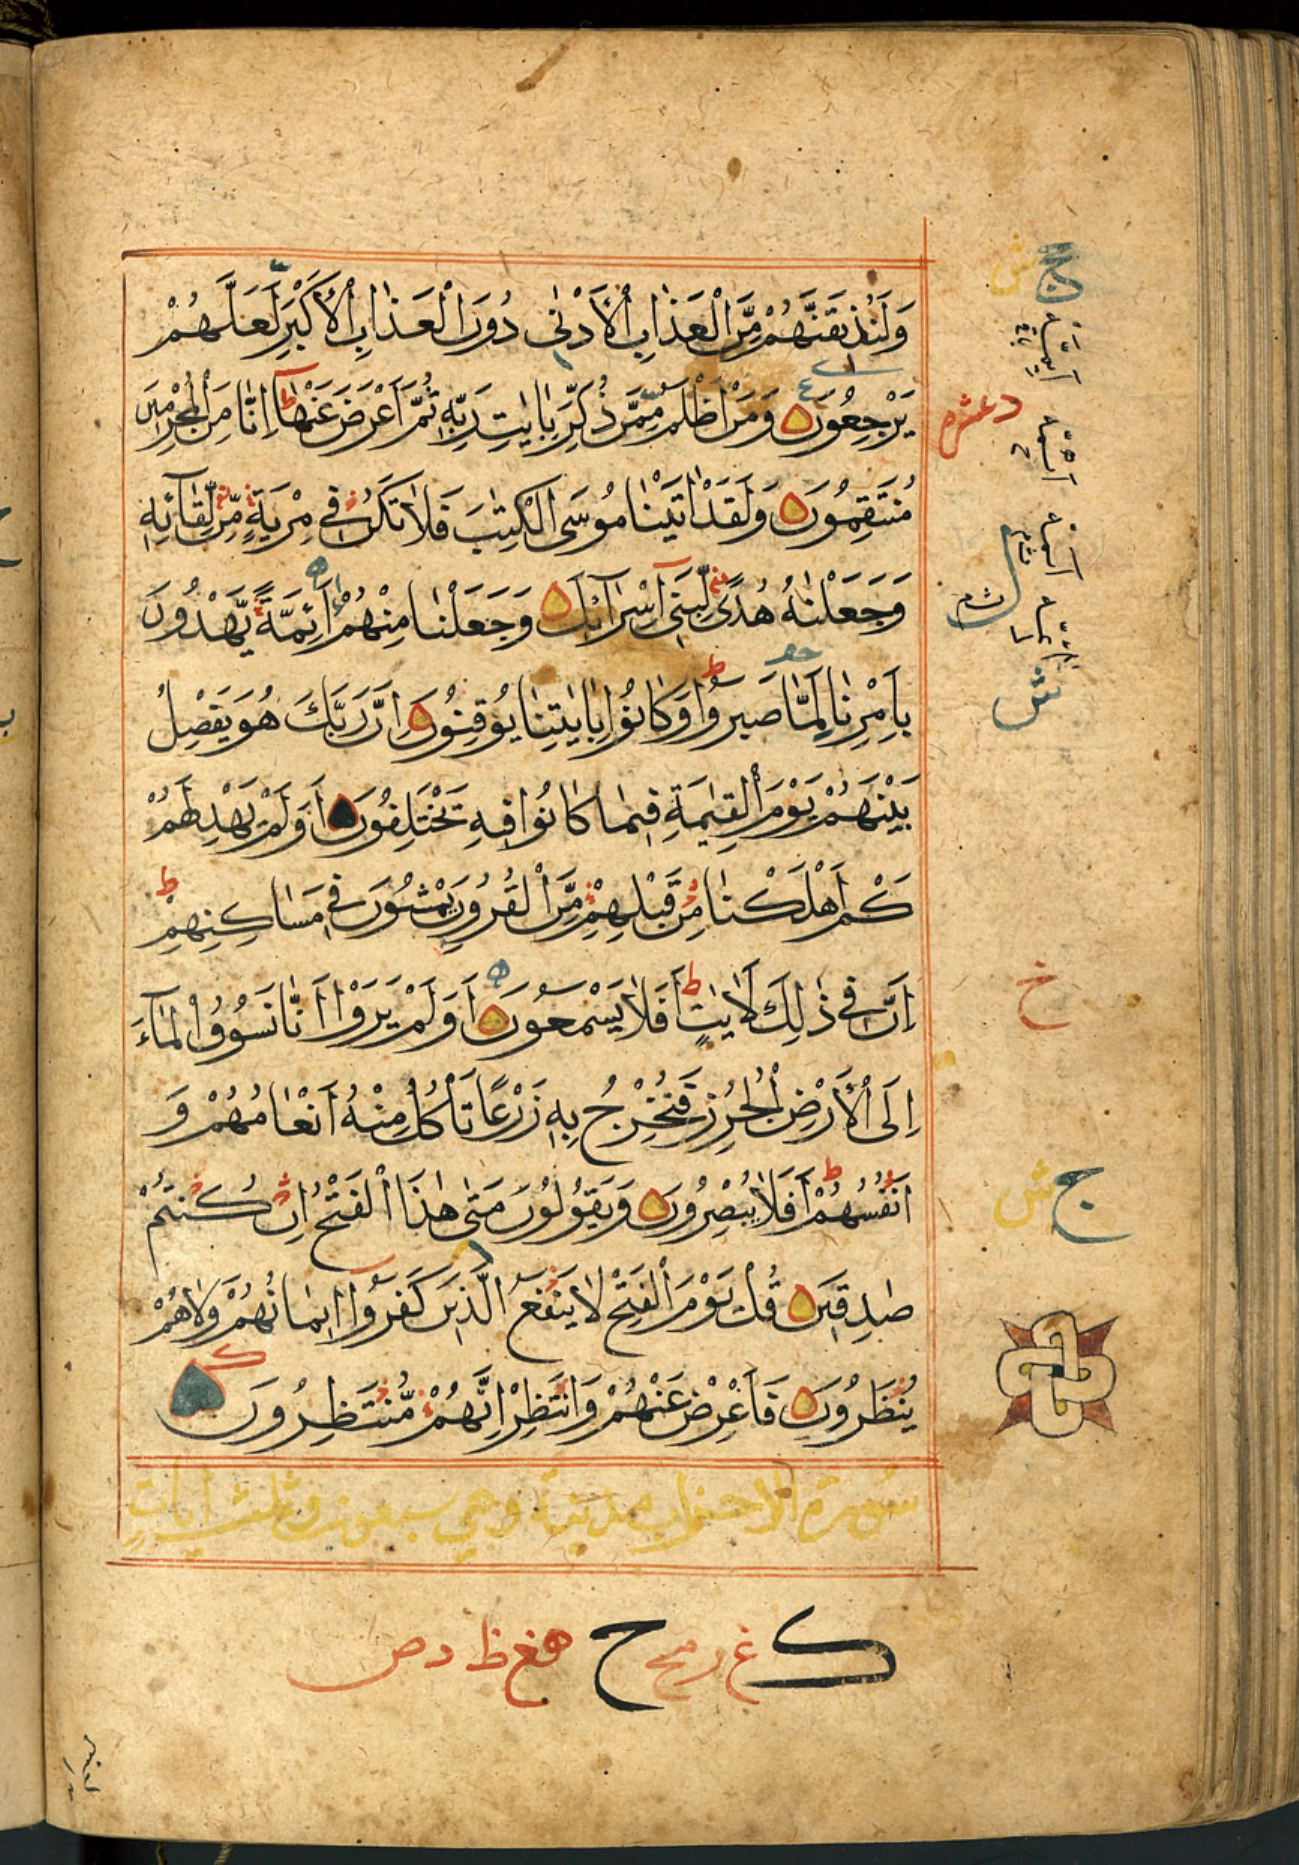 وَلَنُذِيقَنَّهُمْ مِّنَ الْعَذَابِ الْأَدْنٰى دُونَ الْعَذَابِ الْأَكْبَرِ لَعَلَّهُمْ
يَرْجِعُونَ وَمَنْ اَظْلَمُ مِمَّنْ ذُكِّرَ بِاٰيٰتِ رَبِّهٖ ثُمَّ اَعْرَضَ عَنْهَا اِنَّا مِنَ الْمُجْرِمِينَ
مُنْتَقِمُونَ وَلَقَدْ اٰتَيْنَا مُوسَى الْكِتٰبَ فَلَا تَكُنْ فِي مِرْيَةٍ مِّنْ لِّقَآئِهٖ
وَجَعَلْنٰهُ هُدًى لِّبَنِيٓ اِسْرَآئِلَ وَجَعَلْنَا مِنْهُمْ اَئِمَّةً يَّهْدُونَ
بِاَمْرِنَا لَمَّا صَبَرُوا وَكَانُوا بِاٰيٰتِنَا يُوقِنُونَ اِنَّ رَبَّكَ هُوَ يَفْصِلُ
بَيْنَهُمْ يَوْمَ الْقِيٰمَةِ فِيمَا كَانُوا فِيهِ يَخْتَلِفُونَ اَوَلَمْ يَهْدِ لَهُمْ
كَمْ اَهْلَكْنَا مِنْ قَبْلِهِمْ مِّنَ الْقُرُونِ يَمْشُونَ فِي مَسَاكِنِهِمْ
اِنَّ فِي ذٰلِكَ لَاٰيٰتٍ اَفَلَا يَسْمَعُونَ اَوَلَمْ يَرَوْا اَنَّا نَسُوقُ الْمَآءَ
اِلَى الْأَرْضِ الْجُرُزِ فَنُخْرِجُ بِهٖ زَرْعًا تَأْكُلُ مِنْهُ اَنْعَامُهُمْ وَ
اَنْفُسُهُمْ اَفَلَا يُبْصِرُونَ وَيَقُولُونَ مَتٰى هٰذَا الْفَتْحُ اِنْ كُنْتُمْ
صٰدِقِينَ قُلْ يَوْمَ الْفَتْحِ لَا يَنْفَعُ الَّذِينَ كَفَرُوا اِيمَانُهُمْ وَلَا هُمْ
يُنْظَرُونَ فَاَعْرِضْ عَنْهُمْ وَانْتَظِرْ اِنَّهُمْ مُّنْتَظِرُونَ
سورة الاحزاب مدنية وهي سبعون وثلث ايات